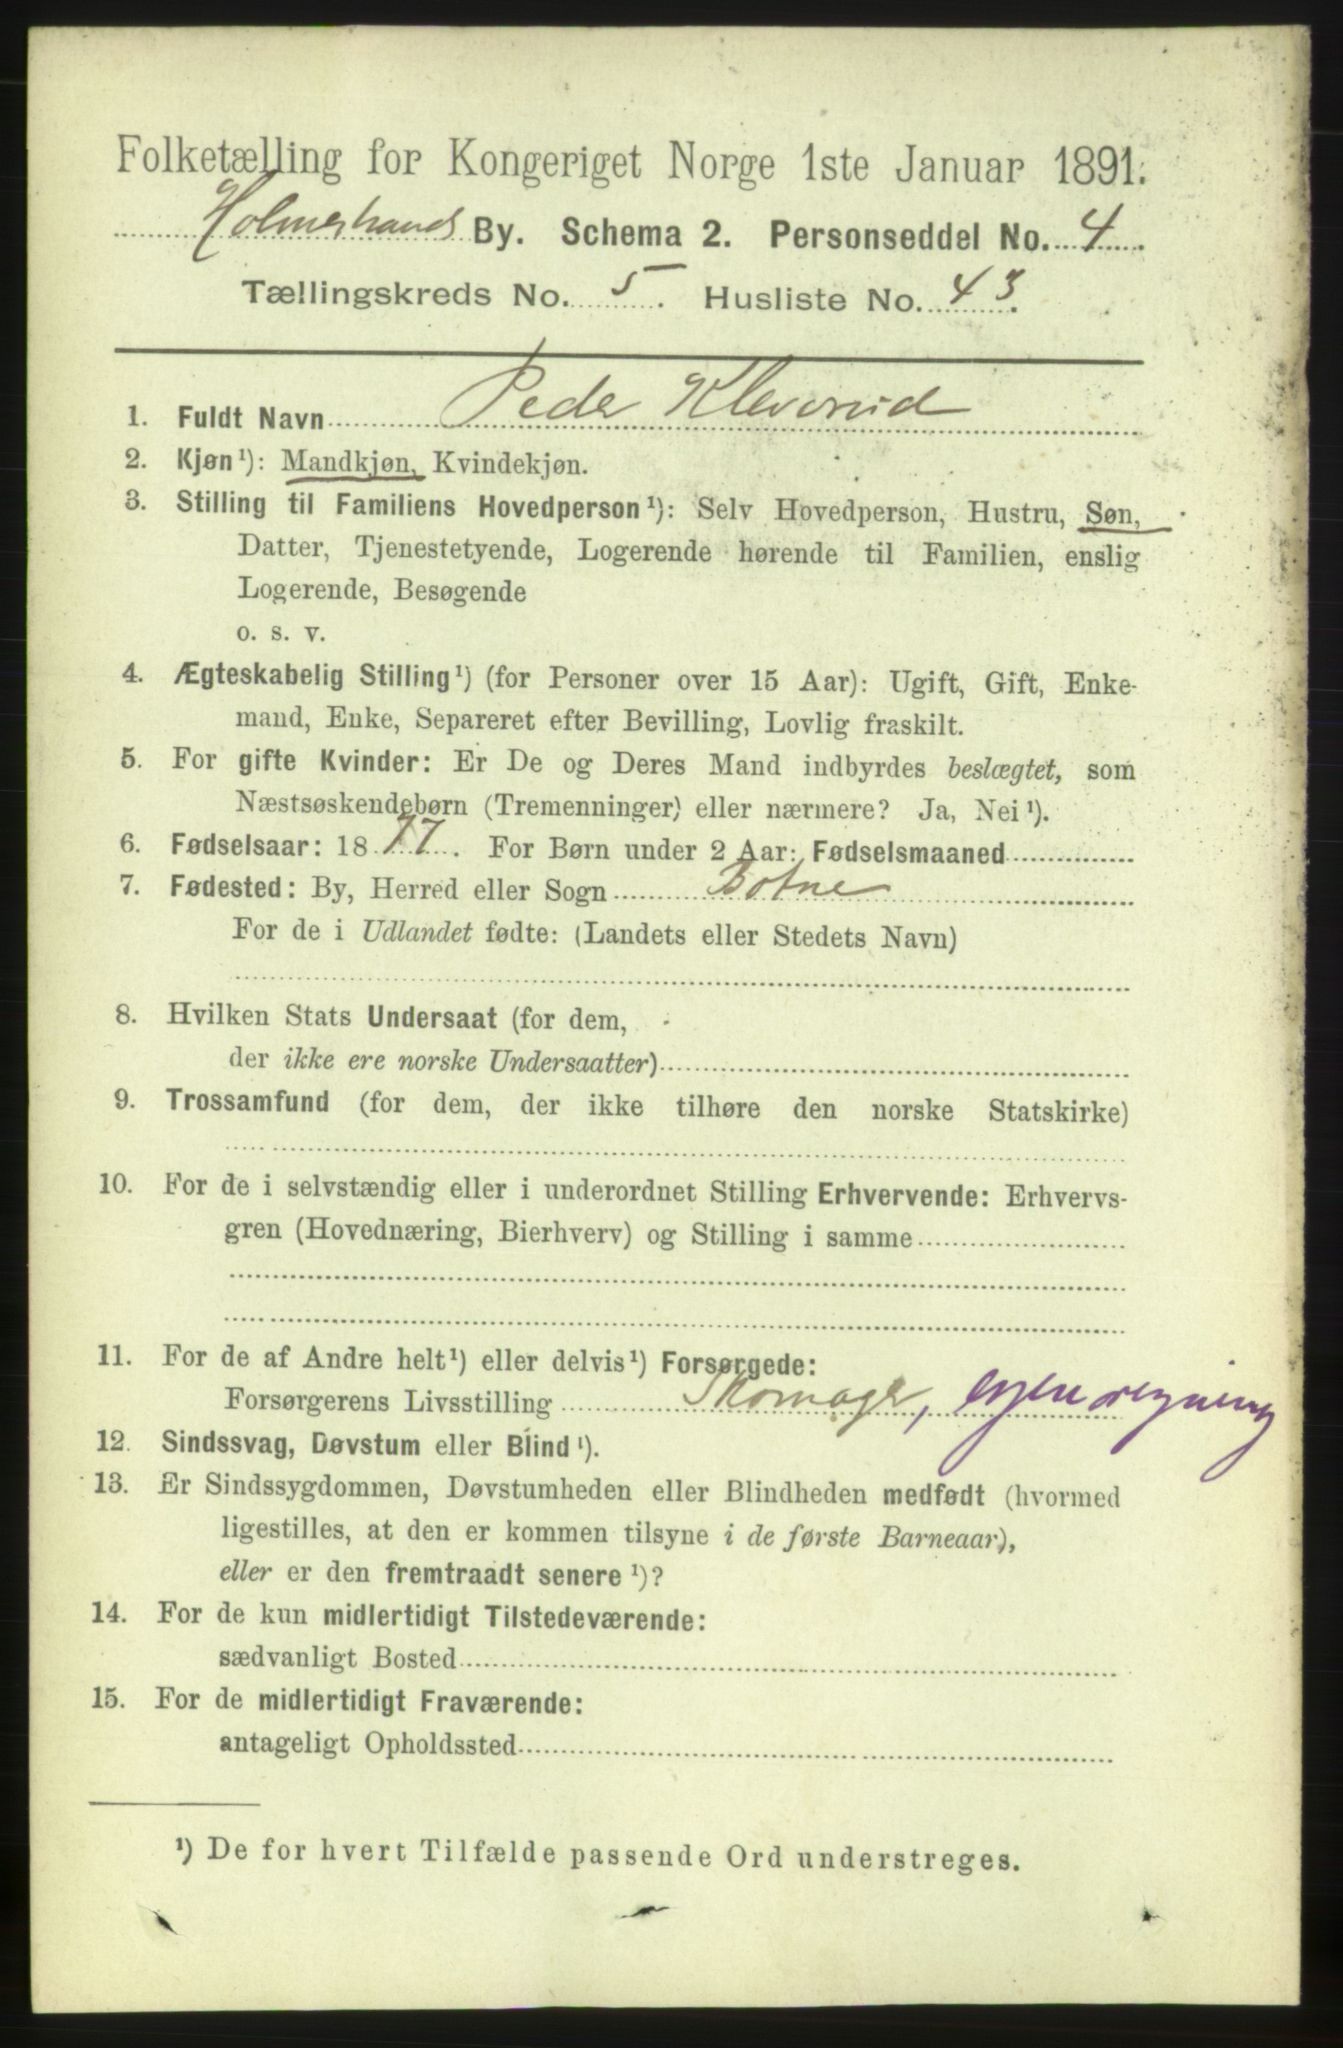 Folketælling for Kongeriget Norge 1ste Januar 1891.
Holmestrands By. Schema 2. Personseddel No. 4.
Tællingskreds No. 5. Husliste No. 43.
1. Fuldt Navn Peder Klevsrud
2. Kjøn¹): Mandkjøn, Kvindekjøn.
3. Stilling til Familiens Hovedperson¹): Selv Hovedperson, Hustru, Søn,
Datter, Tjenestetyende, Logerende hørende til Familien, enslig
Logerende, Besøgende
o. s. v.
4. Ægteskabelig Stilling¹) (for Personer over 15 Aar): Ugift, Gift, Enke-
mand, Enke, Separeret efter Bevilling, Lovlig fraskilt.
5. For gifte Kvinder: Er De og Deres Mand indbyrdes beslægtet, som
Næstsøskendebørn (Tremenninger) eller nærmere? Ja, Nei¹).
6. Fødselsaar: 1877. For Børn under 2 Aar: Fødselsmaaned
7. Fødested: By, Herred eller Sogn Botne
For de i Udlandet fødte: (Landets eller Stedets Navn)
8. Hvilken Stats Undersaat (for dem,
der ikke ere norske Undersaatter)
9. Trossamfund (for dem, der ikke tilhøre den norske Statskirke)
10. For de i selvstændig eller i underordnet Stilling Erhvervende: Erhvervs-
gren (Hovednæring, Bierhverv) og Stilling i samme
11. For de af Andre helt¹) eller delvis¹) Forsørgede:
Forsørgerens Livsstilling Skomager, egen regning
12. Sindssvag, Døvstum eller Blind¹).
13. Er Sindssygdommen, Døvstumheden eller Blindheden medfødt (hvormed
ligestilles, at den er kommen tilsyne i de første Barneaar),
eller er den fremtraadt senere¹)?
14. For de kun midlertidigt Tilstedeværende:
sædvanligt Bosted
15. For de midlertidigt Fraværende:
antageligt Opholdssted
¹) De for hvert Tilfælde passende Ord understreges.